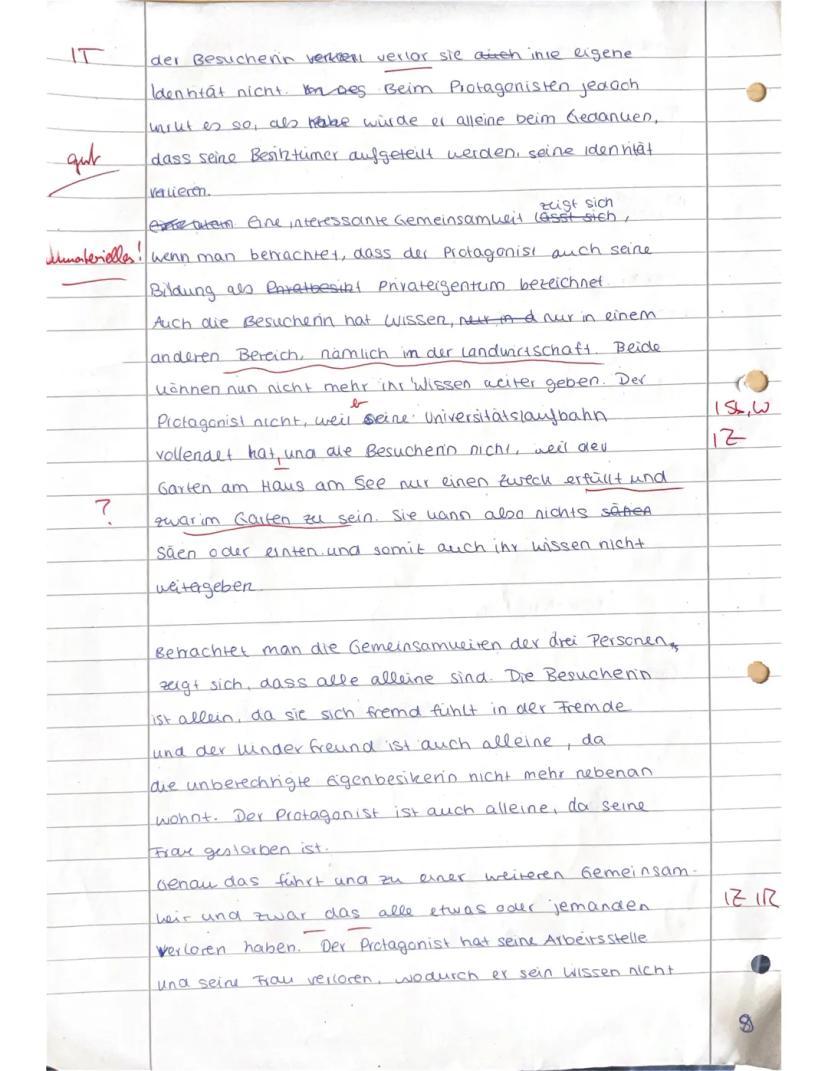 IT
der Besucherin verlor sie auch ihre eigene
Identität nicht. Beim Protagonisten jedoch
wirkt es so, als habe würde er alleine beim Gedanken,
gut
dass seine Besitztümer aufgeteilt werden, seine Identität
verlieren.
zeigt sich
Eine interessante Gemeinsamkeit lässt sich,
Immaterielles!
wenn man betrachtet, dass der Protagonist auch seine
Bildung als Privatbesitz Privateigentum bezeichnet.
Auch die Besucherin hat Wissen, nur in d nur in einem
anderen Bereich, nämlich in der Landwirtschaft. Beide
können nun nicht mehr ihr Wissen weiter geben. Der
er
Protagonist nicht, weil seine Universitätslaufbahn
1 St, W
vollendet hat, und die Besucherin nicht, weil der
1Z
Garten am Haus am See nur einen Zweck erfüllt und
?
zwar im Garten zu sein. Sie kann also nichts sähen
säen oder ernten und somit auch ihr Wissen nicht
weitergeben.
Betrachtet man die Gemeinsamkeiten der drei Personen,
zeigt sich, dass alle alleine sind. Die Besucherin
ist allein, da sie sich fremd fühlt in der Fremde
und der Kinderfreund ist auch alleine, da
die unberechtigte Eigenbesitzerin nicht mehr nebenan
wohnt. Der Protagonist ist auch alleine, da seine
Frau gestorben ist.
Genau das führt und zu einer weiteren Gemeinsam-
keit und zwar das alle etwas oder jemanden
1Z 1R
verloren haben. Der Protagonist hat seine Arbeitsstelle
und seine Frau verloren, wodurch er sein Wissen nicht
8